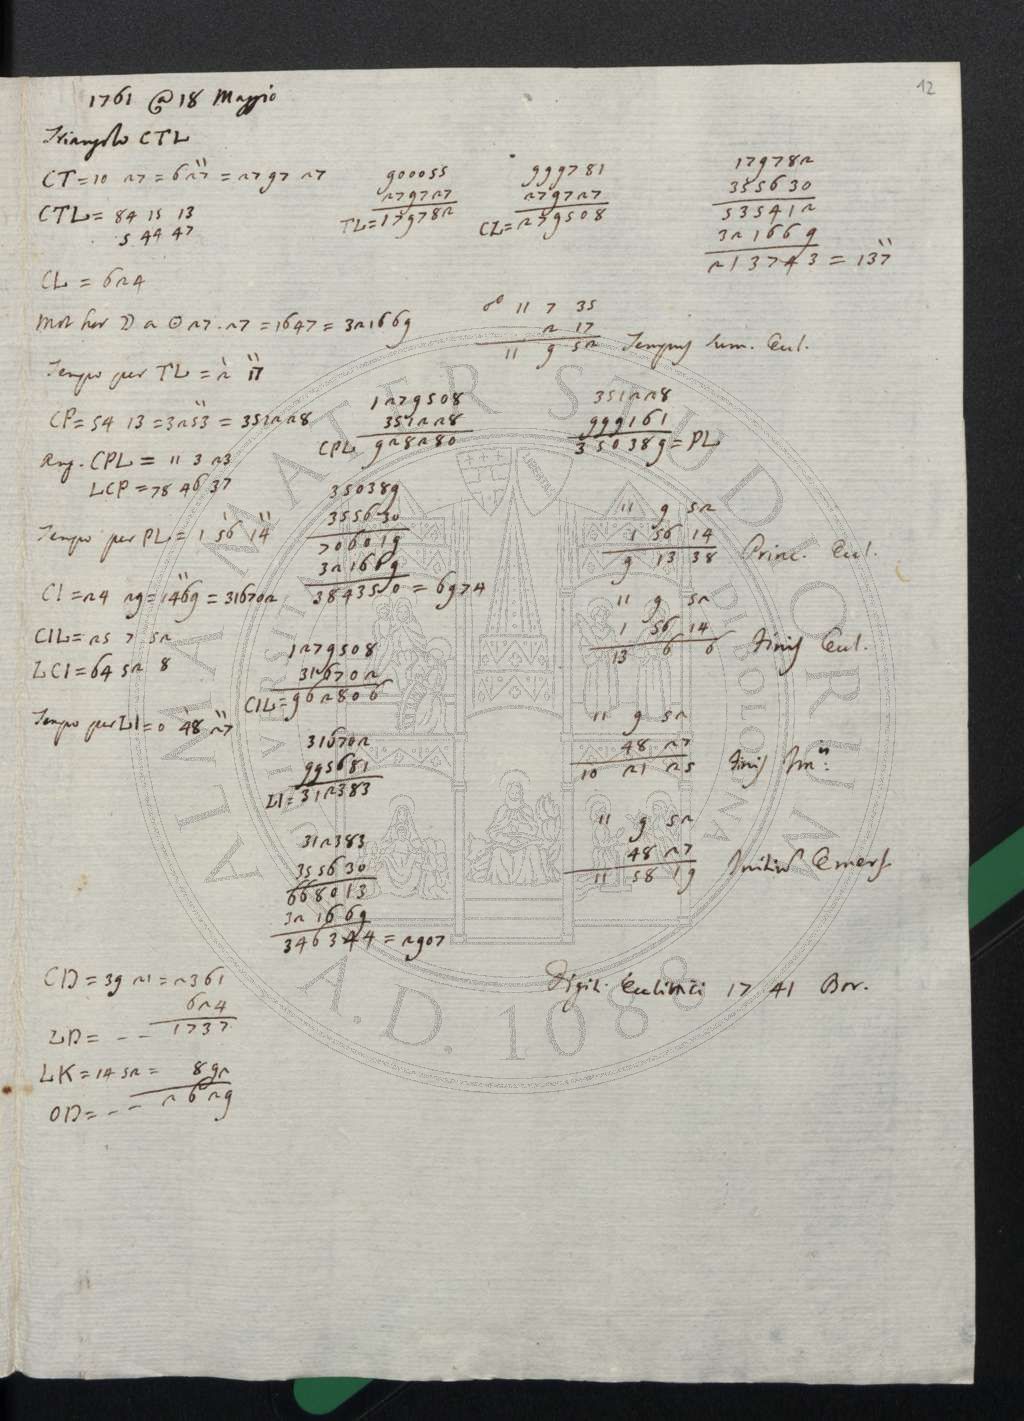 12
1761 @ 18 Maggio
Triangolo CTL
CT = 10 27 = 627'' = 279727
CTL = 84 15 13
5 44 47
900055
279727
TL = 179782
999781
279727
CL = 279508
179782
355630
535412
321669
213743 = 137''
CL = 624
Mot hor ☽ a ☉ 27.27 = 1647 = 321669
☍ 11 7 35
2 17
11 9 52 Tempus Ecl.
Tempo per TL = 2' 17''
CP = 54 13 = 3253'' = 351228
1279508
351228
CPL 928280
351228
999161
350389 = PL
Ang. CPL = 11 3 23
LCP = 78 46 37
Tempo per PL = 1 56' 14''
350389
355630
706019
321669
384350 = 6974
11 9 52
1 56 14
9 13 38 Princ. Ecl.
CI = 24 29 = 1469'' = 316702
CIL = 25 7 52
LCI = 64 52 8
1279508
316702
CIL = 962806
11 9 52
1 56 14
13 6 6 Finis Ecl.
Tempo per LI = 0 48' 27''
316702
995681
LI = 312383
11 9 52
48 27
10 21 25 Finis
312383
355630
668013
321669
346344 = 2907
11 9 52
48 27
11 58 19 Initium Emers
CD = 39 21 = 2361
624
LD = - - 1737
LK = 14 52 = 892
OD = - - 2629
Digit. Ecliptici 17 41 Bor.
ALMA MATER STUDIORUM
A.D. 1088
UNIVERSITÀ DI BOLOGNA
LIBERTAS